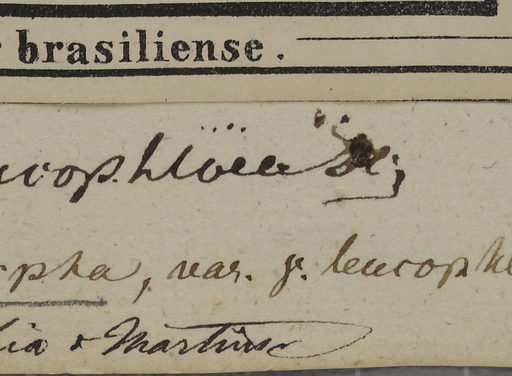 r brasiliense.
ucophloea
rpha, var. γ. leucophl
lia & Martius